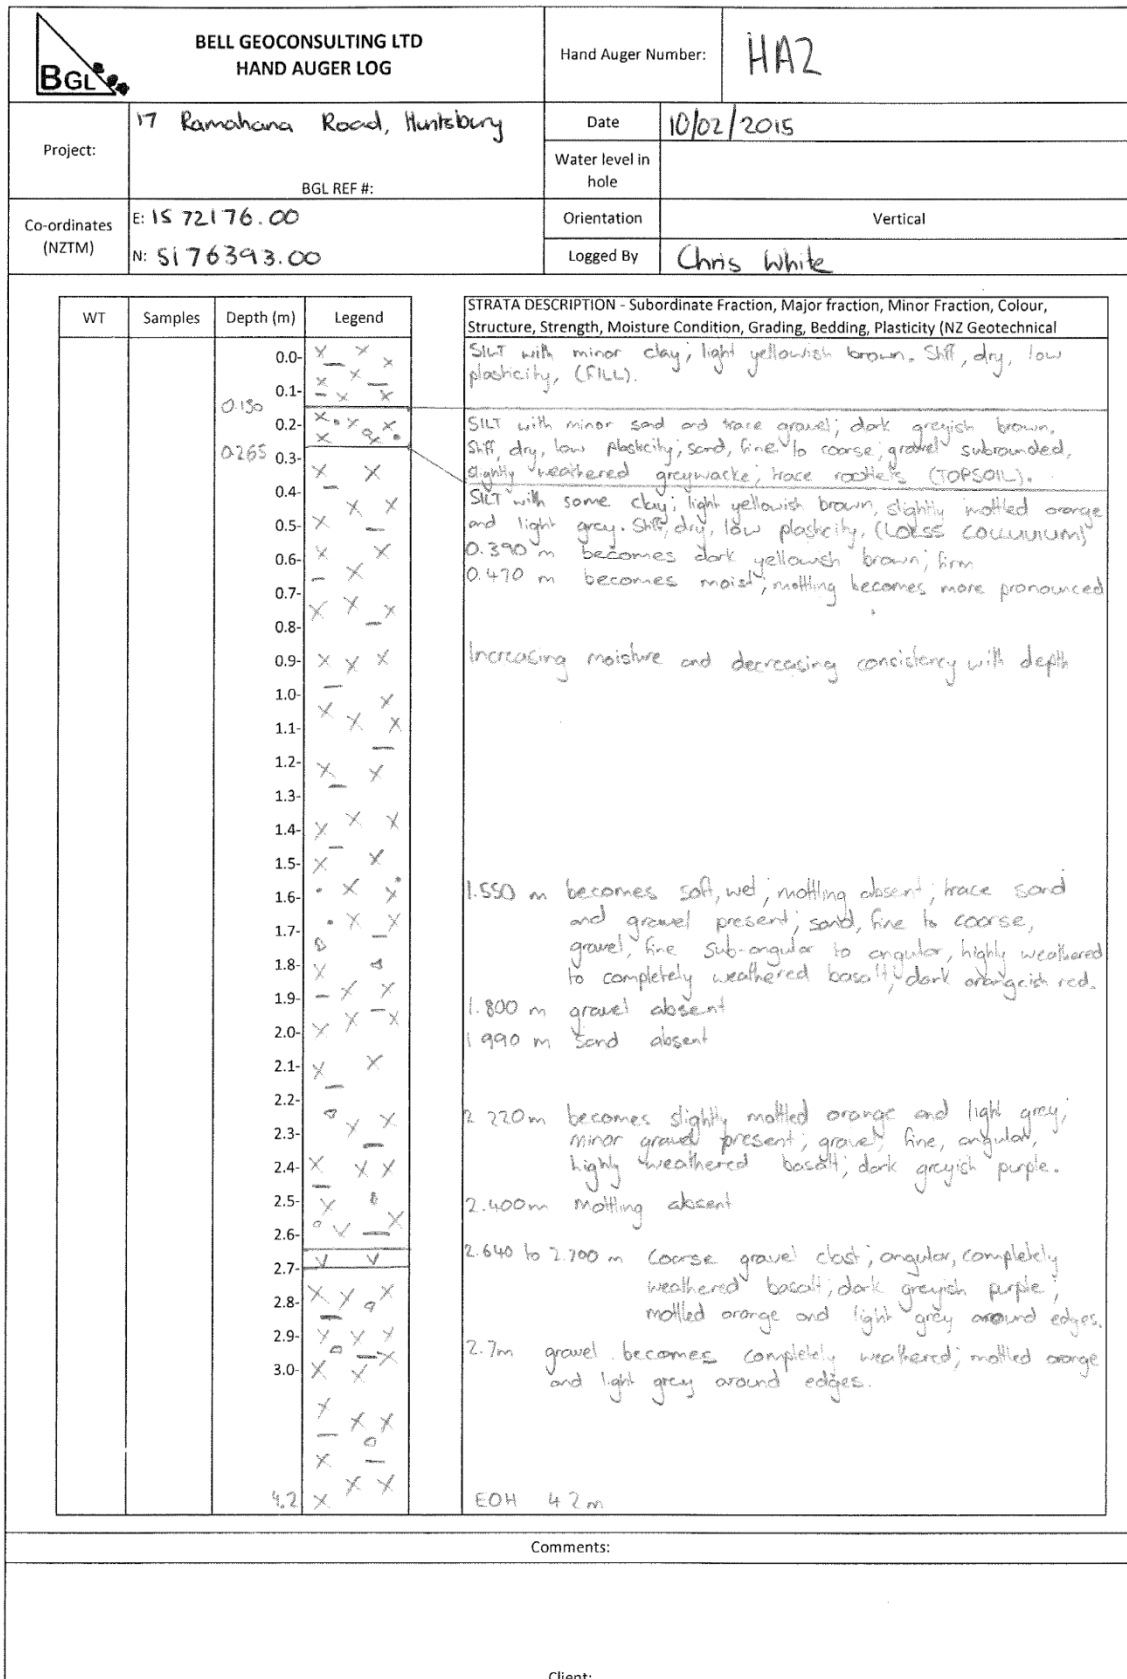 BGL
BELL GEOCONSULTING LTD
HAND AUGER LOG
Hand Auger Number:
HA2
Project:
17 Ramahana Road, Huntsbury
BGL REF #:
Date
10/02/2015
Water level in
hole
Co-ordinates
(NZTM)
E: 1572176.00
N: 5176393.00
Orientation
Vertical
Logged By
Chris White
WT
Samples
Depth (m)
Legend
STRATA DESCRIPTION - Subordinate Fraction, Major fraction, Minor Fraction, Colour,
Structure, Strength, Moisture Condition, Grading, Bedding, Plasticity (NZ Geotechnical
0.0-
SILT with minor clay; light yellowish brown. Stiff, dry, low
plasticity, (FILL).
0.1-
0.150
0.2-
SILT with minor sand and trace gravel; dark greyish brown.
0.265
0.3-
Stiff, dry, low plasticity; sand, fine to coarse; gravel subrounded,
slightly weathered greywacke; trace rootlets (TOPSOIL).
0.4-
SILT with some clay; light yellowish brown, slightly mottled orange
0.5-
and light grey. Stiff, dry, low plasticity, (LOESS COLLUVIUM)
0.6-
0.390 m becomes dark yellowish brown; firm
0.470 m becomes moist; mottling becomes more pronounced
0.7-
0.8-
0.9-
Increasing moisture and decreasing consistency with depth
1.0-
1.1-
1.2-
1.3-
1.4-
1.5-
1.6-
1.550 m becomes soft, wet; mottling absent; trace sand
and gravel present; sand, fine to coarse,
1.7-
gravel, fine sub-angular to angular, highly weathered
1.8-
to completely weathered basalt; dark orangeish red.
1.9-
1.800 m gravel absent
2.0-
1.990 m sand absent
2.1-
2.2-
2.220m becomes slightly mottled orange and light grey;
2.3-
minor gravel present; gravel, fine, angular,
2.4-
highly weathered basalt; dark greyish purple.
2.5-
2.400m mottling absent
2.6-
2.640 to 2.700 m coarse gravel clast; angular, completely
2.7-
weathered basalt; dark greyish purple;
2.8-
mottled orange and light grey around edges.
2.9-
2.7m gravel becomes completely weathered; mottled orange
3.0-
and light grey around edges.
4.2
EOH 4.2m
Comments:
Client: